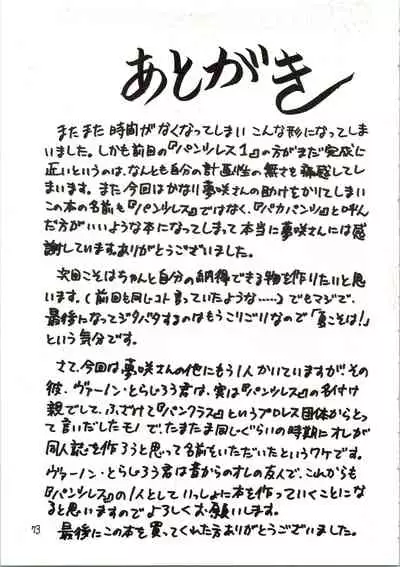 あとがき
またまた時間がなくなってしまい こんな形になってしま
いました。しかも前回の『パンツレス1』の方がまだ完成に
近いというのは、なんとも自分の計画性の無さを痛感してし
まいます。また今回はかなり夢咲さんの助けをかりてしまい
この本の名前も『パンツレス』ではなく、『バカパンツ』と呼ん
だ方がいいような本になってしまって本当に夢咲さんには感
謝しています。ありがとうございました。
次回こそはちゃんと自分の納得できる物を作りたいと思
います。(前回も同じコト言っていたような……)でもマジで、
最後になってジタバタするのはもうこりごりなので「夏こそは!」
という気分です。
さて、今回は夢咲さんの他にもう1人かいていますが、その
彼、ヴァーノン・とらじろう君は、実は『パンツレス』の名付け
親でして、ふざけて『パンクラス』というプロレス団体からとっ
て言いだしたモノで、たまたま同じぐらいの時期にオレが
同人誌を作ろうと思って名前をいただいたというワケです。
ヴァーノン・とらじろう君は昔からのオレの友人で、これからも
『パンツレス』の1人としていっしょに本を作っていくことにな
ると思いますのでよろしくお願いします。
最後にこの本を買ってくれた方ありがとうございました。
73